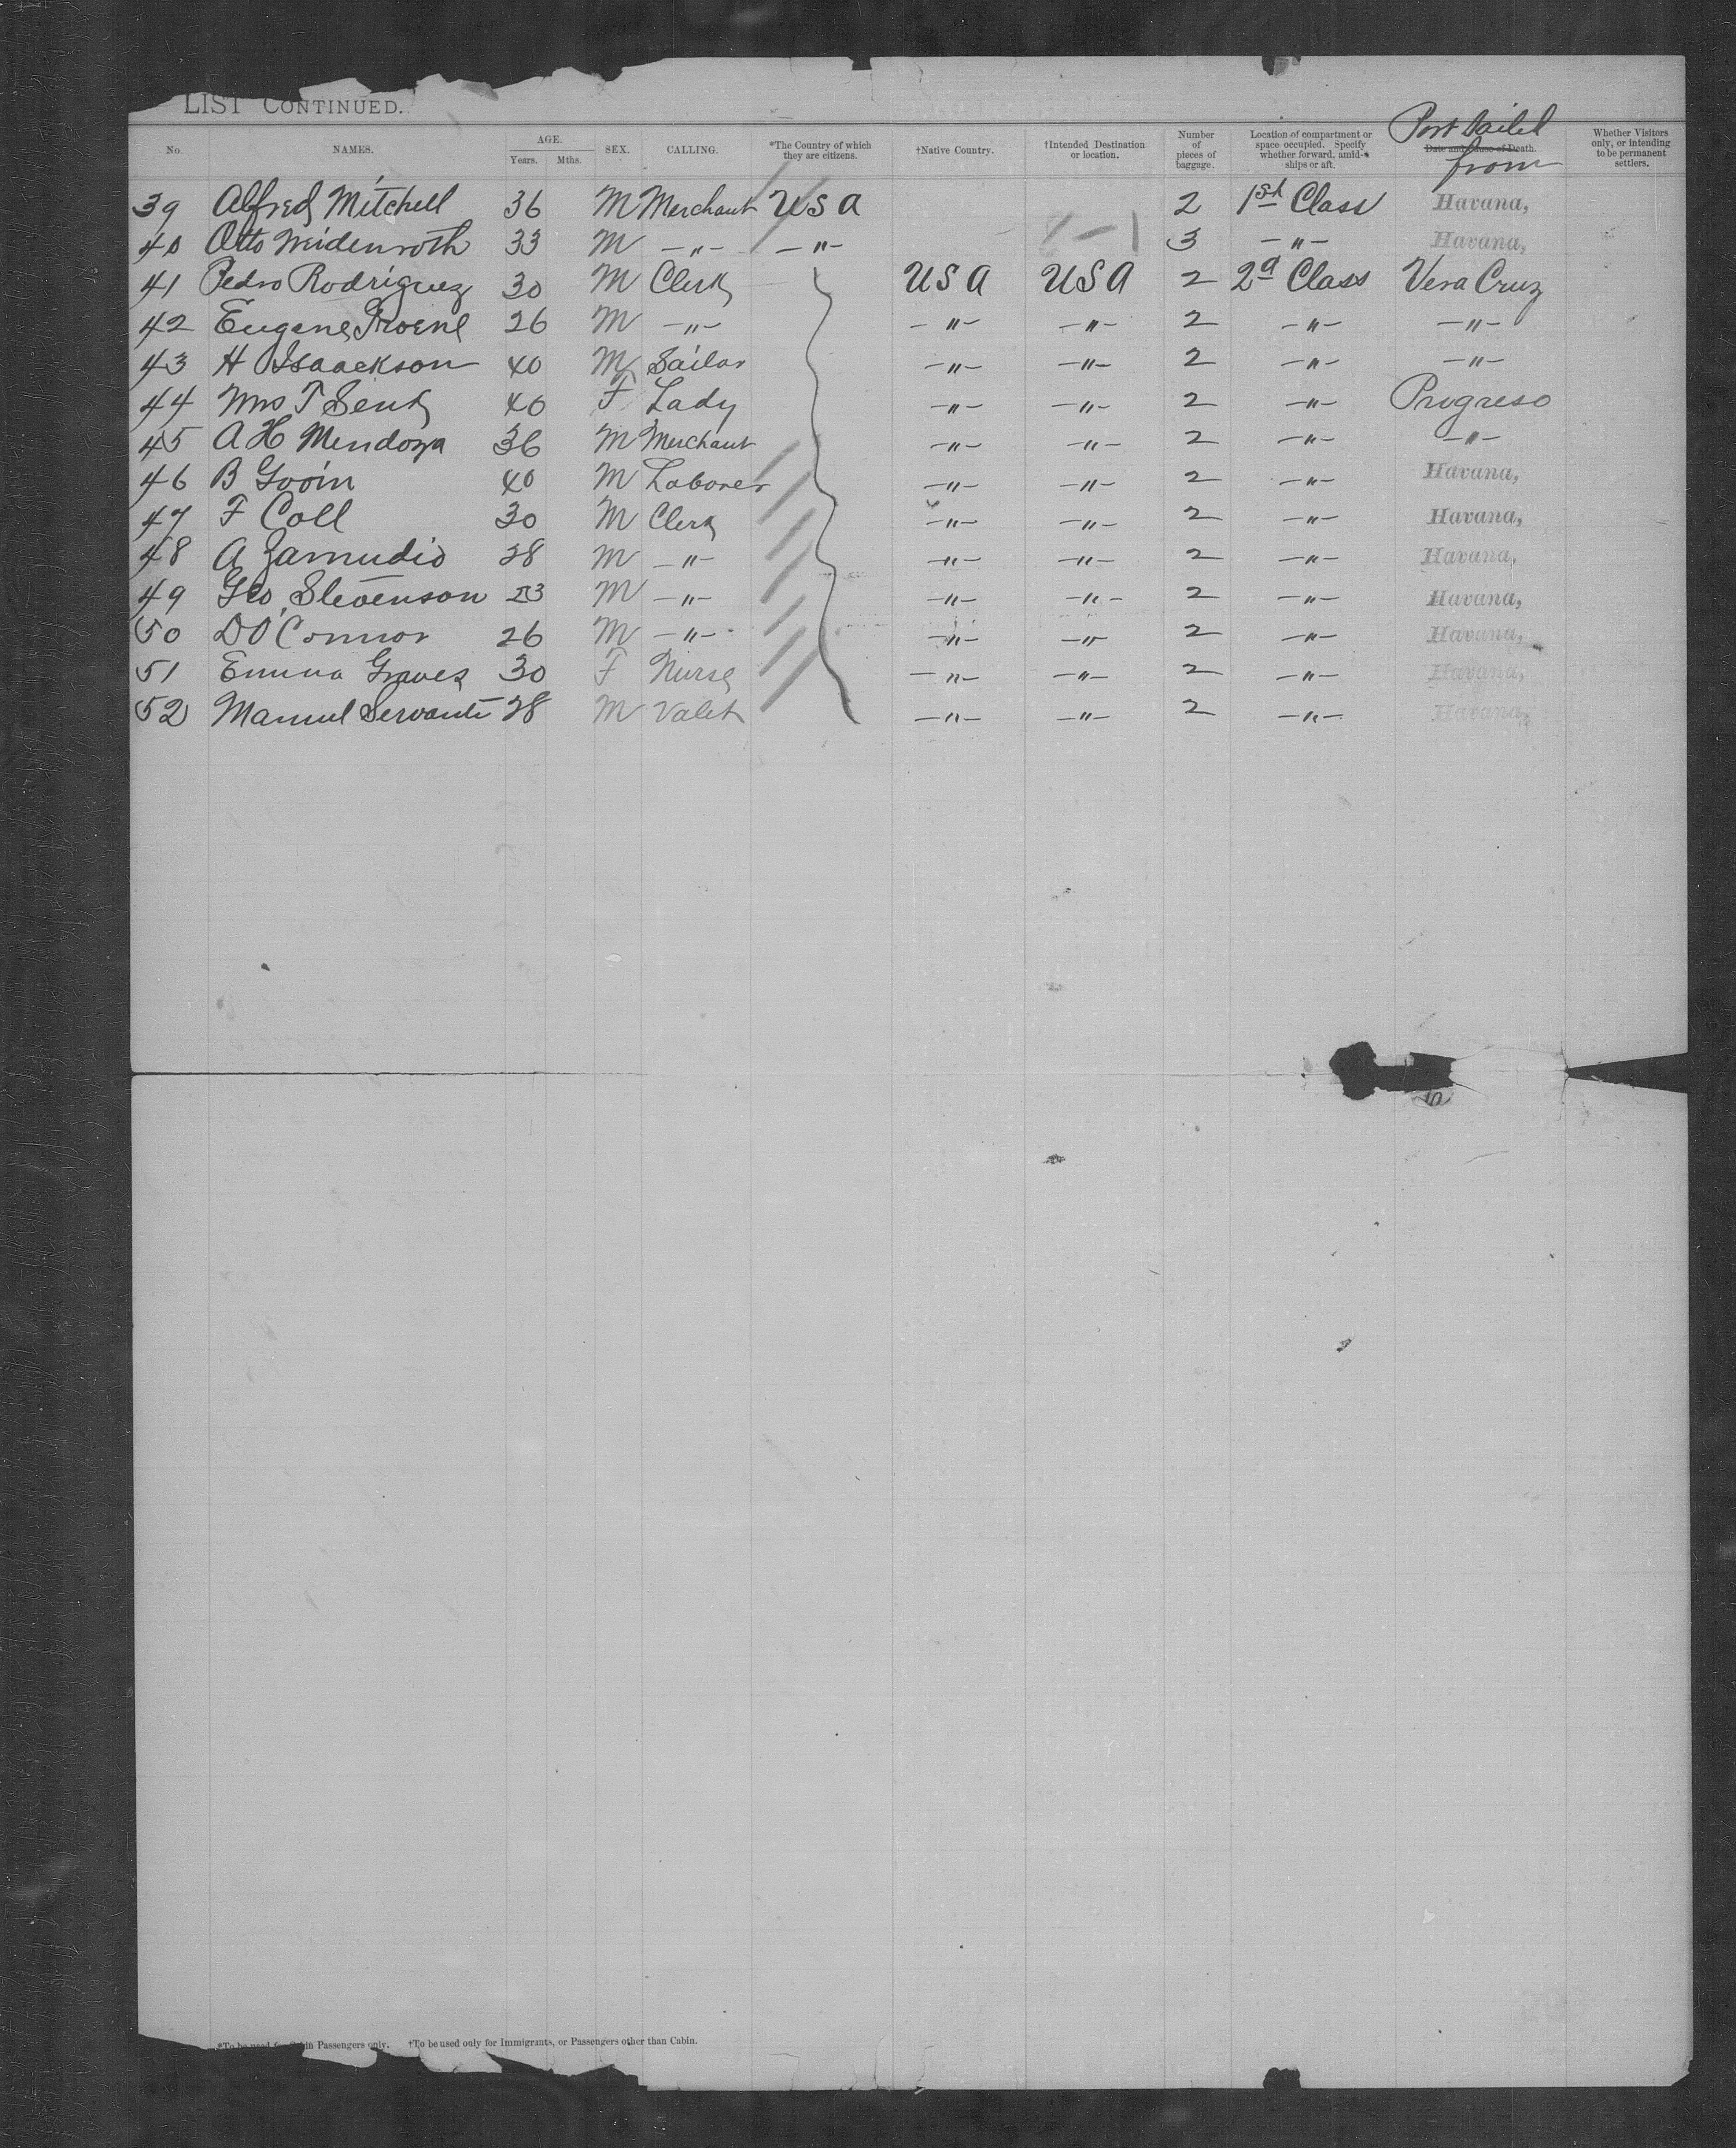 LIST CONTINUED.
No. NAMES. AGE. Years. Mths. SEX. CALLING. *The Country of which they are citizens. †Native Country. †Intended Destination or location. Number of pieces of baggage. Location of compartment or space occupied. Specify whether forward, amid-ships or aft. Date and Cause of Death. Port Sailed from Whether Visitors only, or intending to be permanent settlers.
39 Alfred Mitchell 36 M Merchant USA 2 1st Class Havana,
40 Otto Weidenroth 33 M —"— —"— 3 —"— Havana,
41 Pedro Rodriguez 30 M Clerk USA USA 2 2d Class Vera Cruz
42 Eugene 26 M —"— —"— —"— 2 —"— —"—
43 H Isaackson 40 M Sailor —"— —"— 2 —"— —"—
44 Mrs T 40 F Lady —"— —"— 2 —"— Progreso
45 A H Mendoza 36 M Merchant —"— —"— 2 —"— —"—
46 B Govin 40 M Laborer —"— —"— 2 —"— Havana,
47 F Coll 30 M Clerk —"— —"— 2 —"— Havana,
48 A Zamudio 28 M —"— —"— —"— 2 —"— Havana,
49 Geo Stevenson 23 M —"— —"— —"— 2 —"— Havana,
50 D O'Connor 26 M —"— —"— —"— 2 —"— Havana,
51 Emma Graves 30 F Nurse —"— —"— 2 —"— Havana,
52 Manuel Servanti 28 M Valet —"— —"— 2 —"— Havana,
*To be used for Cabin Passengers only. †To be used only for Immigrants, or Passengers other than Cabin.